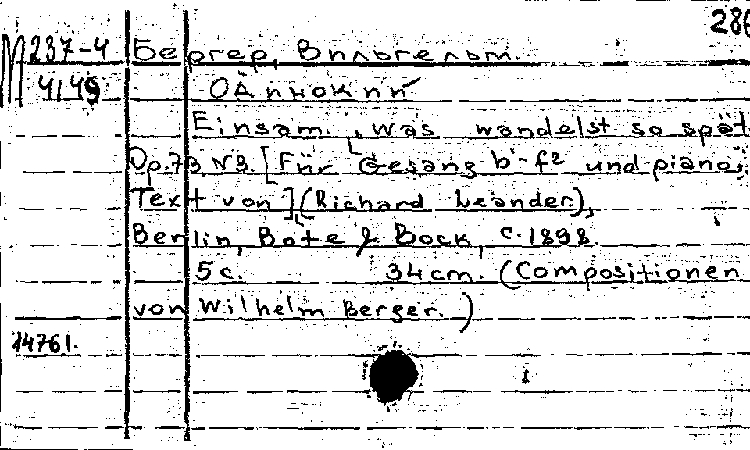 286
М 237-4 Бергер, Вильгельм.
4149 Одинокий
Einsam., was wandelst so spät
Op. 73 N3. [Für Gesang b'-f² und piano,
Text von] (Richard Leander),
Berlin, Bote & Bock, c. 1898.
5 c. 34 cm. (Compositionen
von Wilhelm Berger.)
14761.